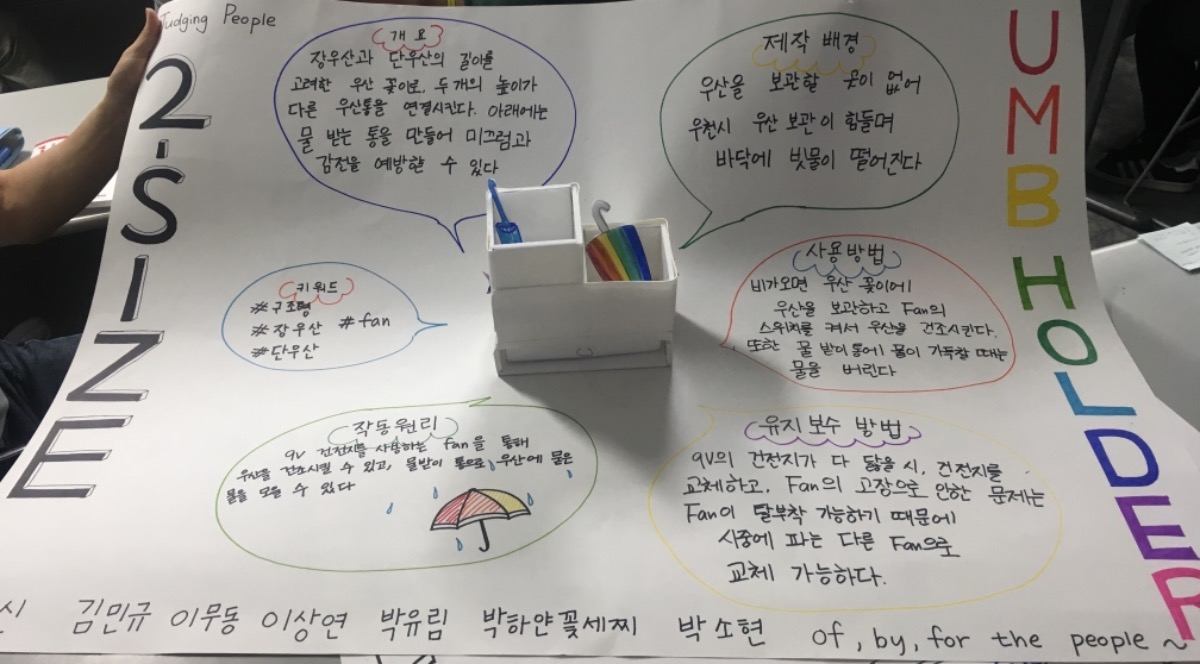 Judging People
2-SIZE
UMB HOLDER
개요
장우산과 단우산의 길이를
고려한 우산 꽂이로, 두 개의 높이가
다른 우산통을 연결시킨다. 아래에는
물 받는 통을 만들어 미끄럼과
감전을 예방할 수 있다
제작 배경
우산을 보관할 곳이 없어
우천시 우산 보관이 힘들며
바닥에 빗물이 떨어진다
키워드
#구조형
#장우산 #fan
#단우산
사용방법
비가오면 우산 꽂이에
우산을 보관하고 Fan의
스위치를 켜서 우산을 건조시킨다.
또한 물 받이 통에 물이 가득찰 때는
물을 버린다
작동원리
9V 건전지를 사용하는 fan을 통해
우산을 건조시킬 수 있고, 물받이 통으로 우산에 묻은
물을 모을 수 있다
유지보수 방법
9V의 건전지가 다 닳을 시, 건전지를
교체하고, Fan의 고장으로 인한 문제는
Fan이 탈부착 가능하기 때문에
시중에 파는 다른 Fan으로
교체 가능하다.
신 김민규 이무동 이상연 박유림 박하얀꽃세찌 박소현 of, by, for the people~